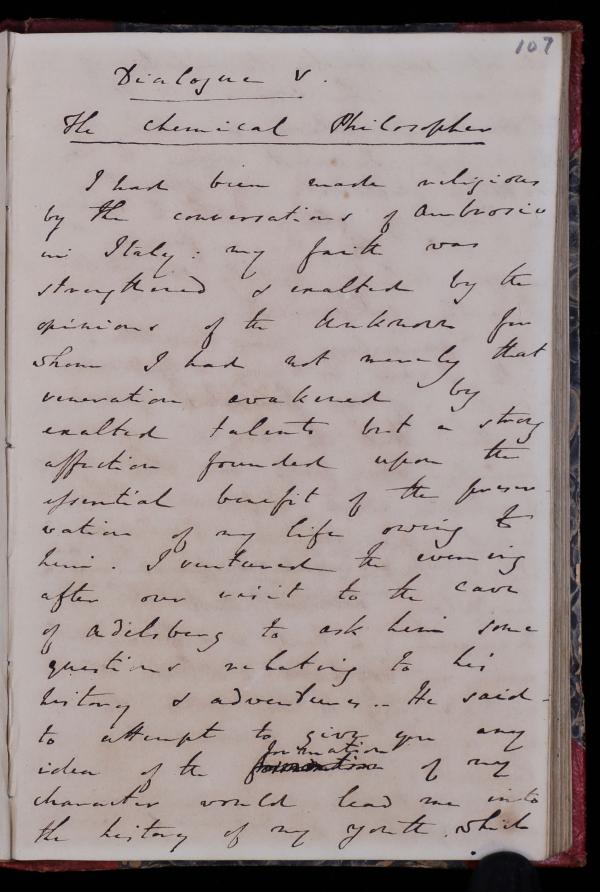 107
Dialogue V.
The Chemical Philosopher
I had been made religious
by the conversations of Ambrosio
in Italy: my faith was
strengthened & exalted by the
opinions of the Unknown for
whom I had not merely that
veneration awakened by
exalted talents but a strong
affection founded upon the
essential benefit of the preser
vation of my life owing to
him. I ventured the evening
after our visit to the cave
of Adelsberg to ask him some
questions relating to his
history & adventures.. He said -
to attempt to give you any
formation
idea of the of my
character would lead me into
the history of my youth which